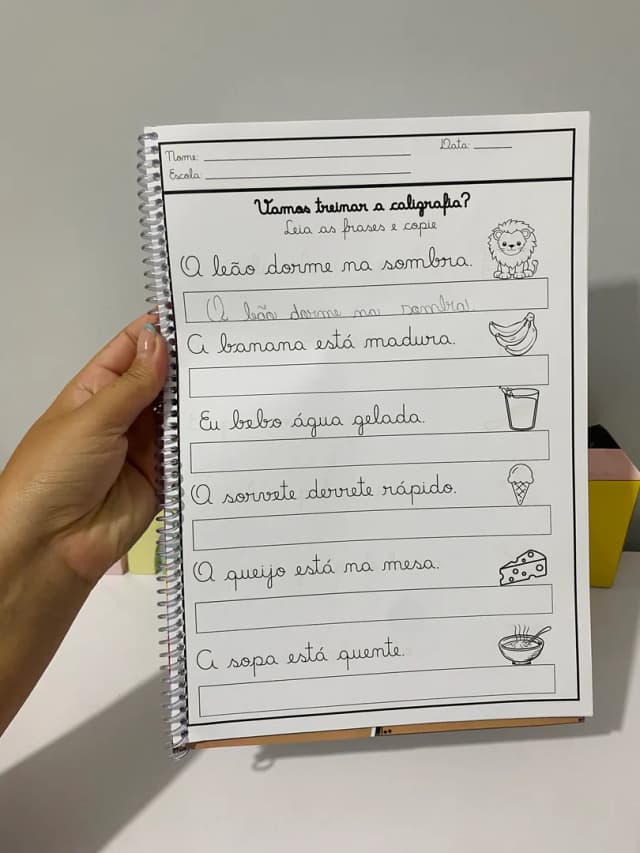 Nome: Data:
Escola:
Vamos treinar a caligrafia?
Leia as frases e copie
O leão dorme na sombra.
O leão dorme na sombra!
A banana está madura.
Eu bebo água gelada.
O sorvete derrete rápido.
O queijo está na mesa.
A sopa está quente.